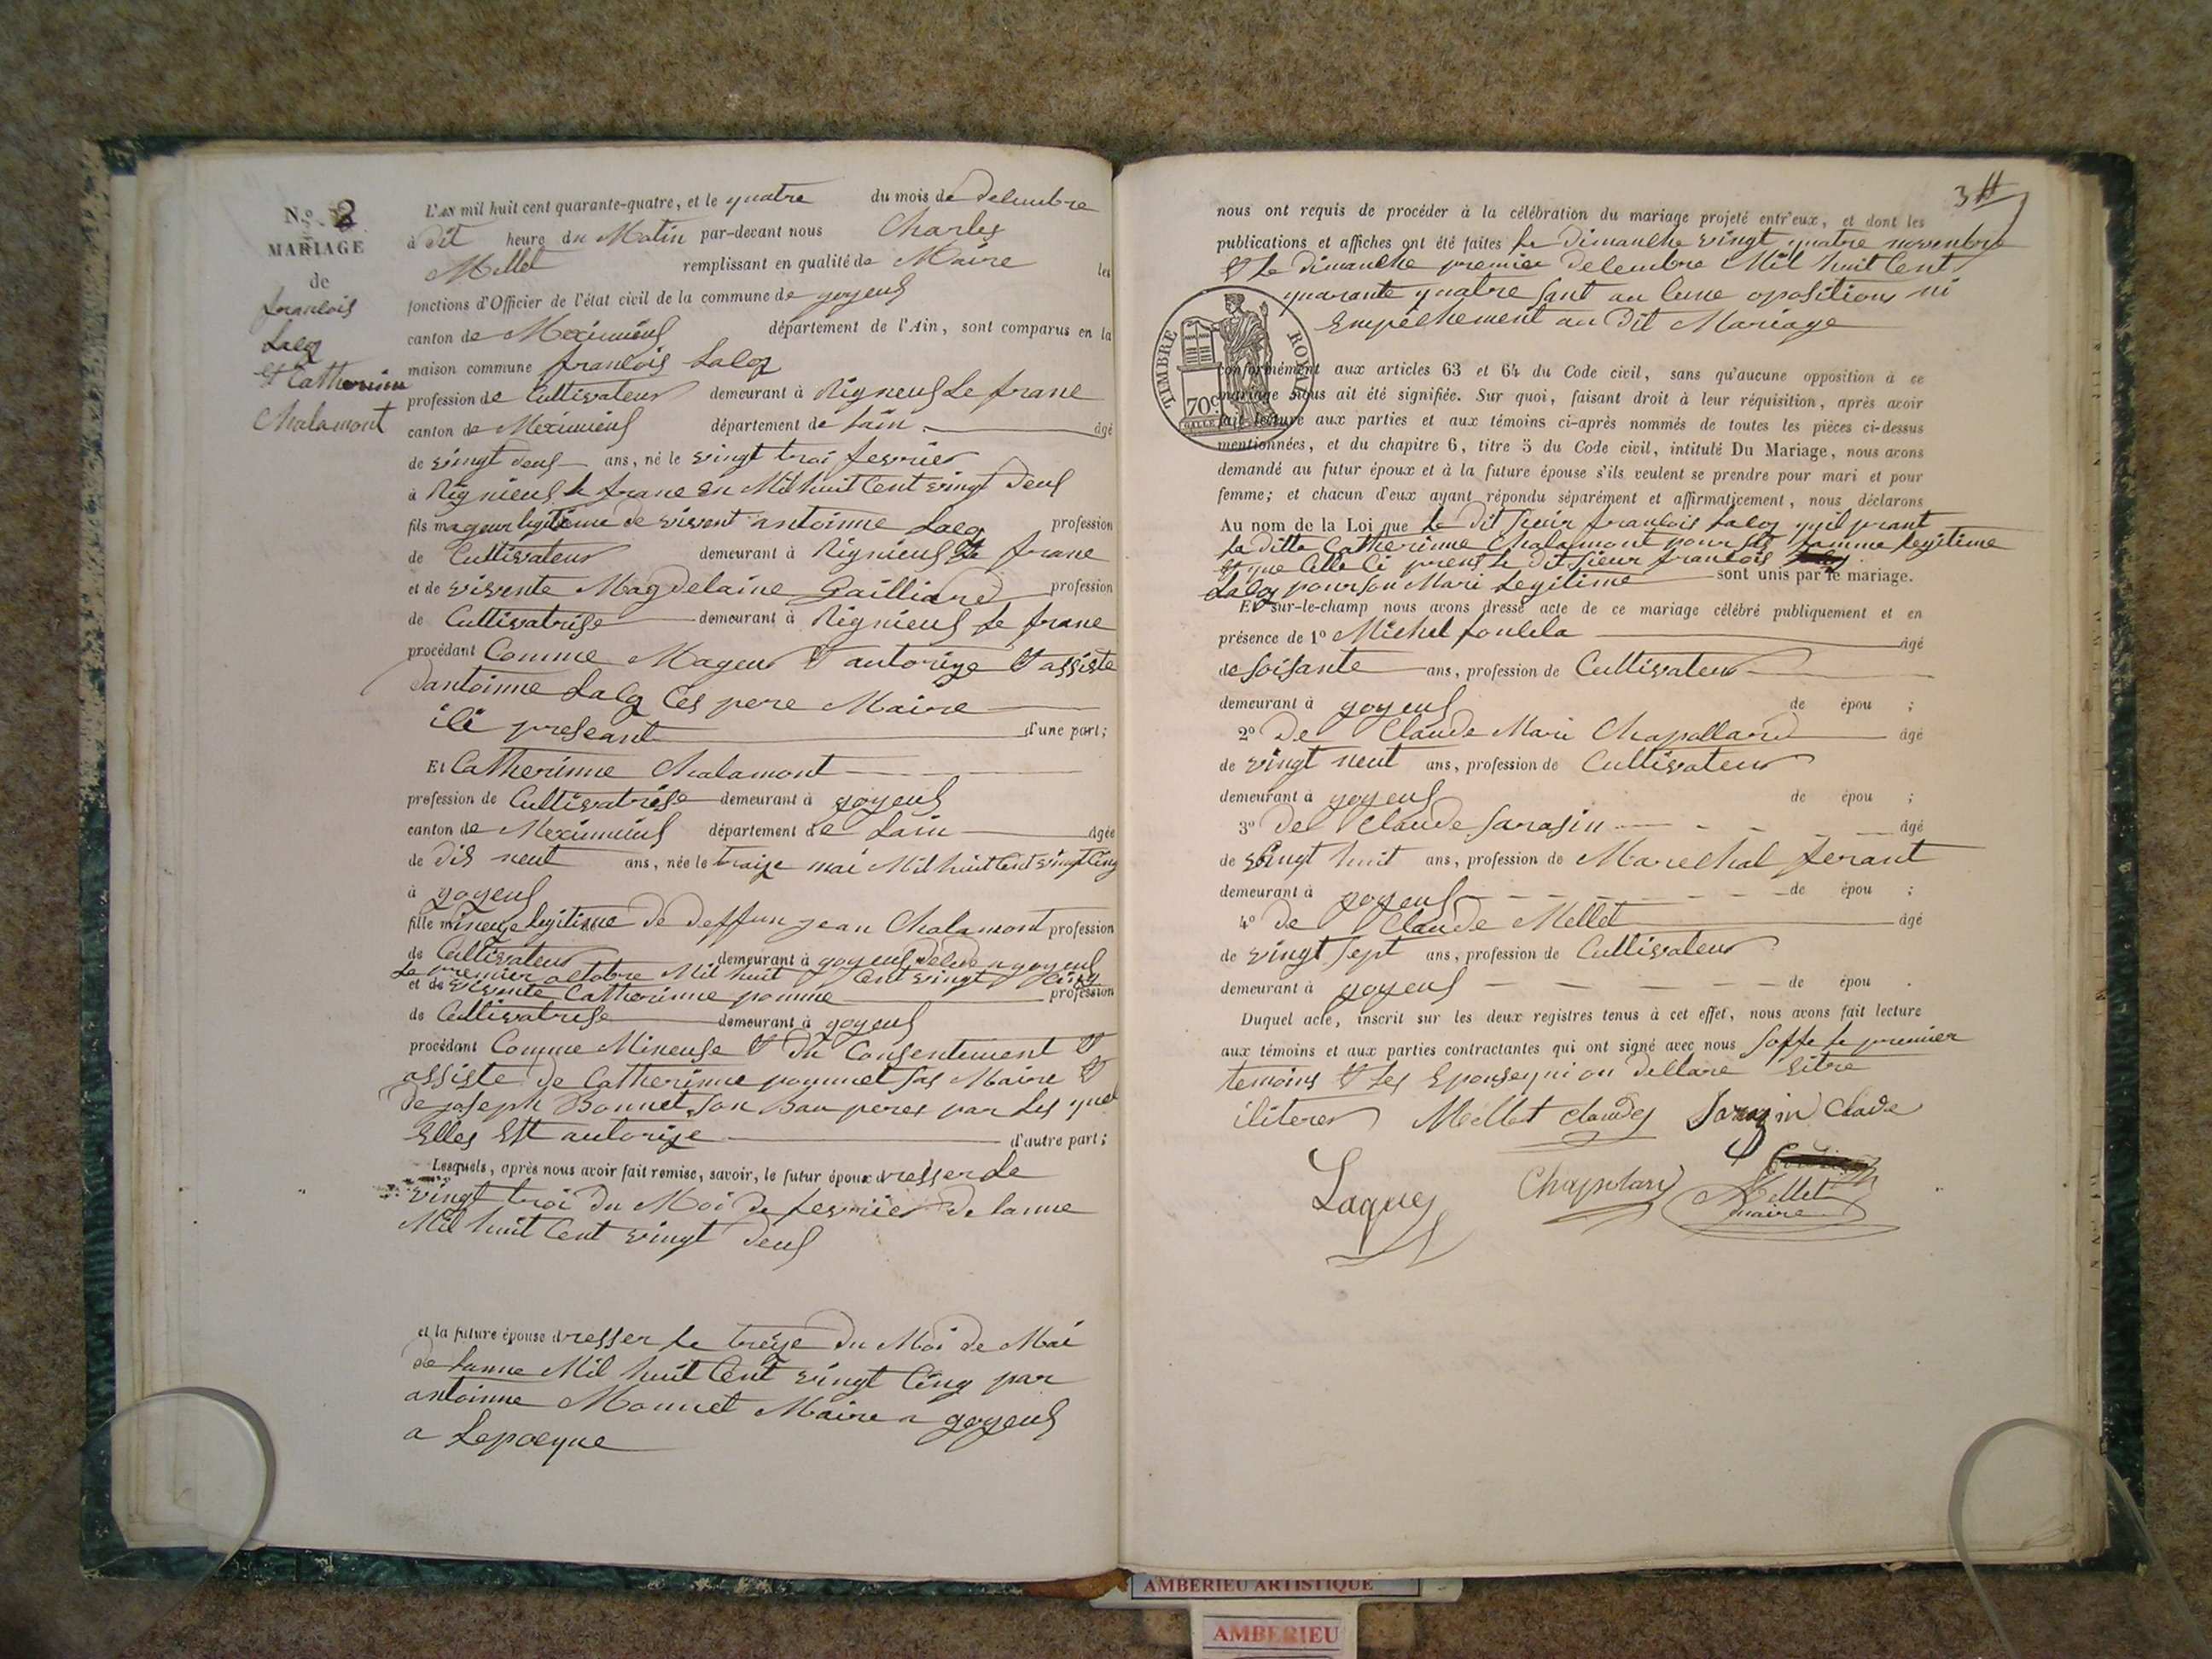 N.º 2
MARIAGE
de
francois
Lacq
et Catherinne
Chalamont
L'AN mil huit cent quarante-quatre, et le quatre du mois de decembre
à dit heure du Matin par-devant nous Charles
Mellet remplissant en qualité de Maire les
fonctions d'Officier de l'état civil de la commune de joyeus
canton de Meximieus département de l'Ain, sont comparus en la
maison commune francois Lacq
profession de Cultivateur demeurant à Rigneus Le franc
canton de Meximieus département de Lain âgé
de vingt deus ans, né le vingt troi fevrier
à Rignieus le franc en Mil huit Cent vingt deus
fils mageur legitime de vivent antoinne Lacq profession
de Cultivateur demeurant à Rignieus Le franc
et de vivente Magdelaine Gailliard profession
de Cultivatrise demeurant à Rignieus Le franc
procédant Comme Mageur et autorize et assiste
dantoinne Lacq Ces pere Maire
ici preseant d'une part;
Et Catherinne Chalamont
profession de Cultivatrise demeurant à joyeus
canton de Meximieus département de Lain âgée
de dis neut ans, née le traize mai Mil huit Cent vingt Cinq
à joyeus
fille mineuze legitime de deffun jean Chalamont profession
de Cultivateur demeurant à joyeus decede a joyeus
Le premier octobre Mil huit Cent vingt Cinq
et de vivente Catherinne pomme profession
de Cultivatrise demeurant à joyeus
procédant Comme Mineuse et du Consentement et
assiste de Catherinne pommet sas Maire et
de joseph Bonnet son Bau peres par Les quel
Elles Est autorize d'autre part;
Lesquels, après nous avoir fait remise, savoir, le futur époux dresser Le
vingt troi du Moi de fevrier de lanne
Mil huit Cent vingt deus
et la future épouse dresser Le treize du Moi de Mai
de Lanne Mil huit Cent vingt Cinq par
antoinne Monnet Maire a joyeus
a Lepoeque
34
nous ont requis de procéder à la célébration du mariage projeté entr'eux, et dont les
publications et affiches ont été faites Le dimanche vingt quatre novembre
et Le dimanche premier decembre Mil huit Cent
quarante quatre sant au Cune opositions ni
Empéchement au dit Mariage
TIMBRE ROYAL
70c
conformément aux articles 63 et 64 du Code civil, sans qu'aucune opposition à ce
mariage nous ait été signifiée. Sur quoi, faisant droit à leur réquisition, après avoir
fait lecture aux parties et aux témoins ci-après nommés de toutes les pièces ci-dessus
mentionnées, et du chapitre 6, titre 5 du Code civil, intitulé Du Mariage, nous avons
demandé au futur époux et à la future épouse s'ils veulent se prendre pour mari et pour
femme; et chacun d'eux ayant répondu séparément et affirmativement, nous déclarons
Au nom de la Loi que Le dit sieur francois Lacq quil prant
La ditte Catherinne Chalamont pour sas famme legitime
et que Celle Ci prent Le dit sieur francois
Lacq pour son Mari Legitime sont unis par le mariage.
Et sur-le-champ nous avons dressé acte de ce mariage célébré publiquement et en
présence de 1º Michel Loulela âgé
de soisante ans, profession de Cultivateur
demeurant à joyeus de épou ;
2º de Claude Mari Chapollard âgé
de vingt neut ans, profession de Cultivateur
demeurant à joyeus de épou ;
3º de Claude Sarasin âgé
de vingt huit ans, profession de Marechal ferant
demeurant à joyeus de épou ;
4º de Claude Mellet âgé
de vingt sept ans, profession de Cultivateur
demeurant à joyeus de épou .
Duquel acte, inscrit sur les deux registres tenus à cet effet, nous avons fait lecture
aux témoins et aux parties contractantes qui ont signé avec nous soffe Le premier
temoins et Les Epouse qui on decllare Eitre
iliterer Mellet claudes Sarazin Clade
Laques Chapolard Mellet
maire
AMBERIEU ARTISTIQUE
AMBERIEU